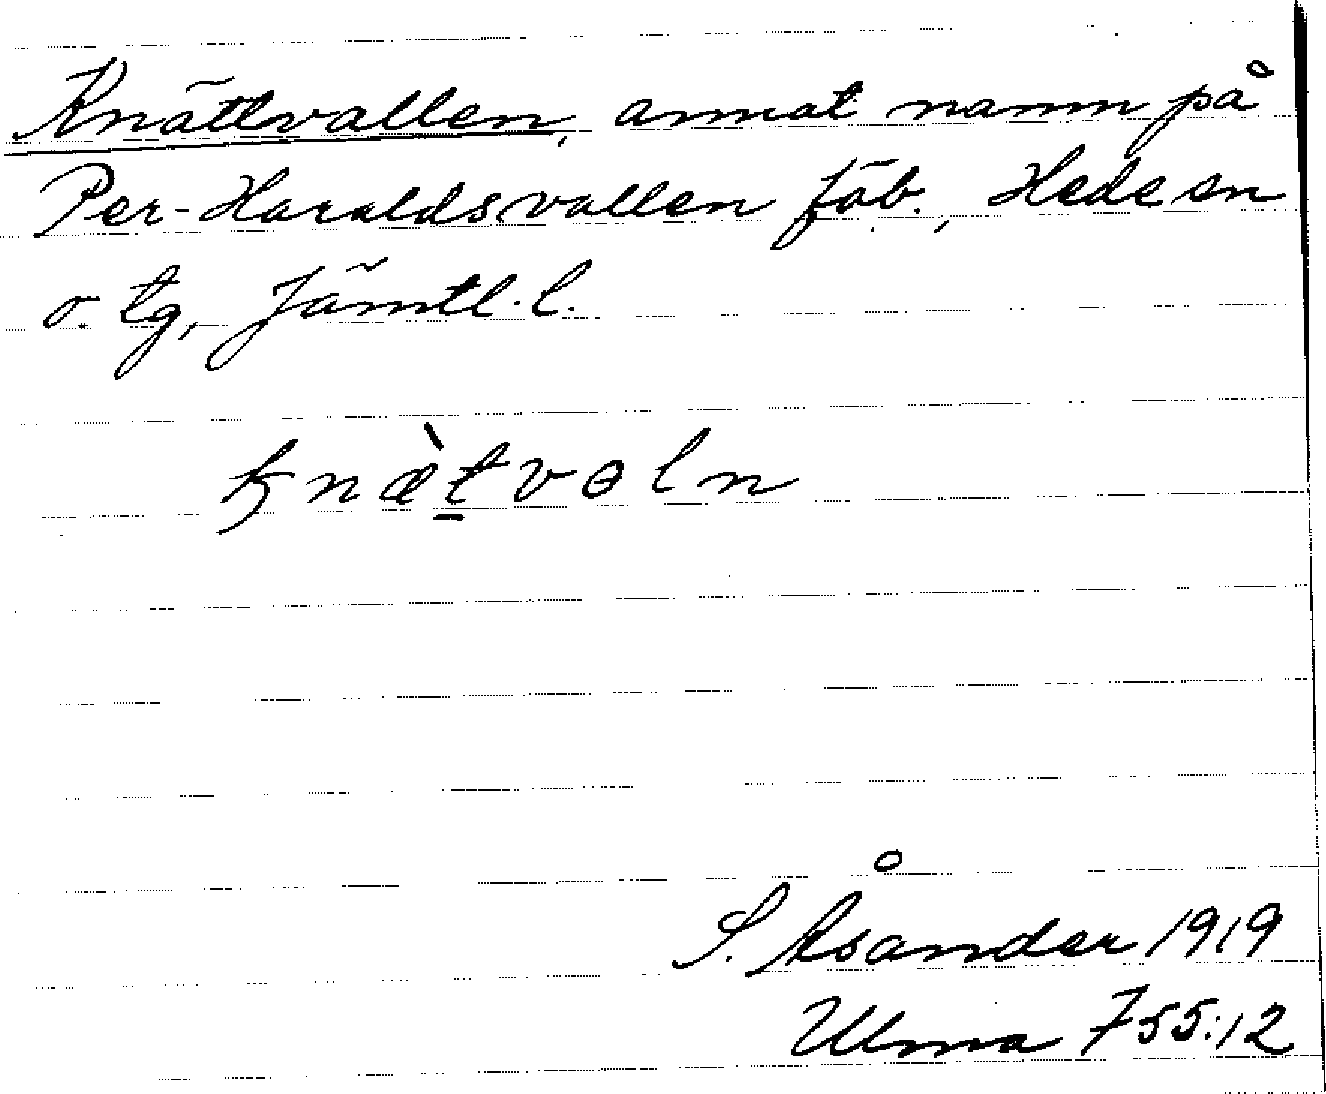 Knättvallen, annat namn på
Per-Haraldsvallen fäb., Hede sn
o. tg, Jämtl. l.
knæ̀t̲voln
S. Åsander 1919
Ulma 755:12